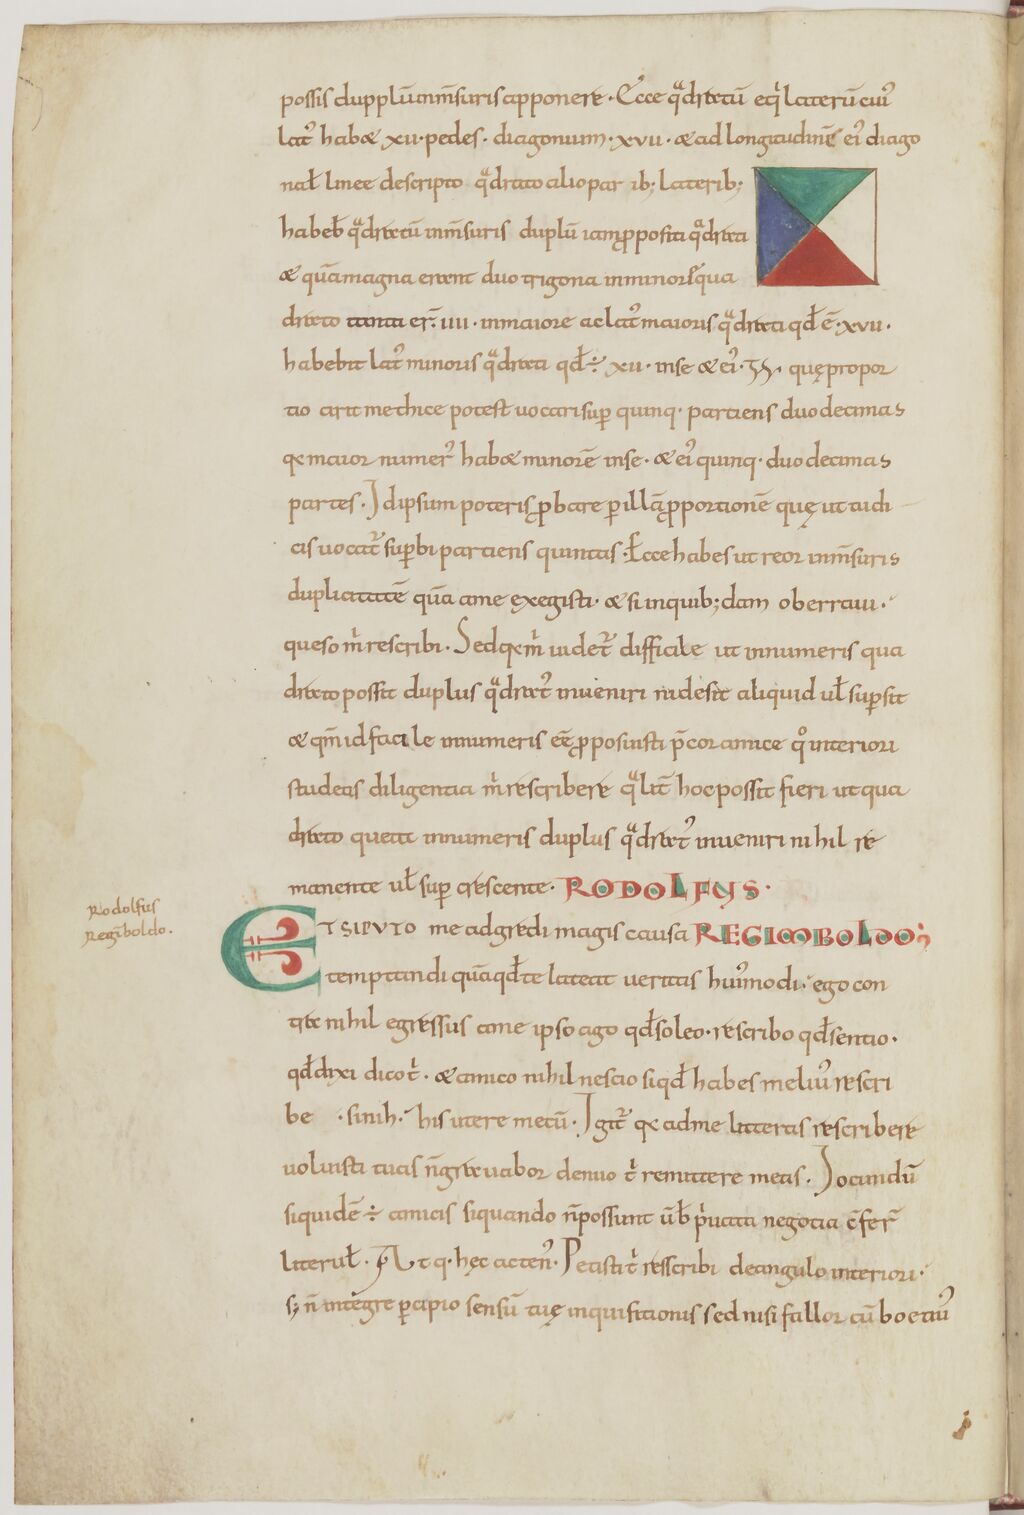 possis dupplū inm̄suris apponere. Ecce qͣdratū eqͥlaterū cui᾽
lat᾽ habæ xii. pedes. diagonium. xvii. æ ad longitudinē ei᾽ diago
nał linee descripto qͣdrato alio par ib; laterib;
habeƀ qͣdratū inm̄suris duplū iam ꝓpositi qͣdrati
æ quā magna erant duo trigona in minori qua
drato tanta er̄ iiii. in maiore ac lat᾽ maioris qͣdrati qđ ē xvii.
habebit lat᾽ minoris qͣdrati qđ ÷ xii. inse æ ei᾽ quę propor
tio aritmethice potest uocari sup̱ quinq. partiens duodecimas
qa maior numer᾽ habæ minorē inse. æ ei᾽ quinq. duodecimas
partes. Id ipsum poteris ꝓbare p̱ illā ꝓportionē quę ut tu di
cis uocat᾽ sup̱bi partiens quintas. Ecce habes ut reor inm̄suris
duplicitatē quā a me exegisti. æ si in quib;dam oberraui.
queso m̓ rescribi. Sed qa m̓ uidet᾽ difficile ut in numeris qua
drato possit duplus qͣdrat᾽ inueniri ni desit aliquid uł sup̱sit
æ qm̄ id facile in numeris eē ꝓposuisti p̄cor amice qͦ interiori
studeas diligentia m̓ rescribere qͣlit̄ hoc possit fieri ut qua
drato queat in numeris duplus qͣdrat᾽ inueniri nihil re
manente uł sup̱ crescente. RODOLFVS.
Rodolfus
Regīboldo.
ETSI PVTO me adgredi magis causa REGIMBOLDO;
temptandi quā qđ te lateat ueritas hui᾽modi. ego con
tra nihil egressus a me ipso ago qđ soleo. rescribo qđ sentio.
qđ dixi dico t̓. æ amico nihil nescio si qđ habes meliu᾽ rescri
be .sin ih. his utere mecū. Igit᾽ qa ad me litteras rescribere
uoluisti tuas n̄ grauabor denuo t̓ remittere meas. Iocundū
siquidē ÷ amicis si quando n̄ possunt ūƀ p̓uata negotia c̄fer̄
literuł. At q. hęc acten᾽. Petisti t̓ resscribi de angulo interiori.
Sꝫ n̄ integre p̱cipio sensū tuę inquisitionis sed nisi fallor cū boetiu᾽